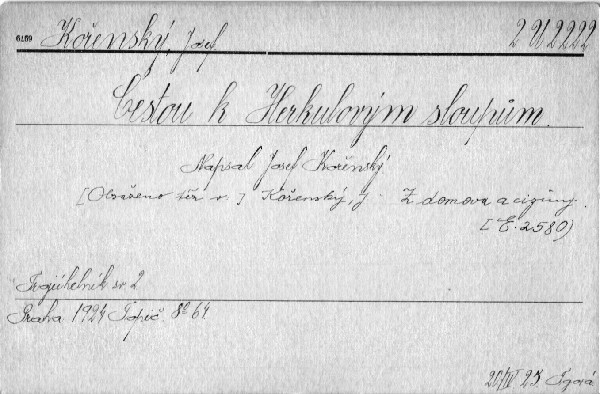 6459 Kořenský, Josef 2 U 2222
Cestou k Herkulovým sloupům.
Napsal Josef Kořenský
[Obsaženo též v.] Kořenský, J. Z domova a ciziny.
[E. 2580]
Trojúhelník sv. 2
Praha 1924 Topič. 8° 64